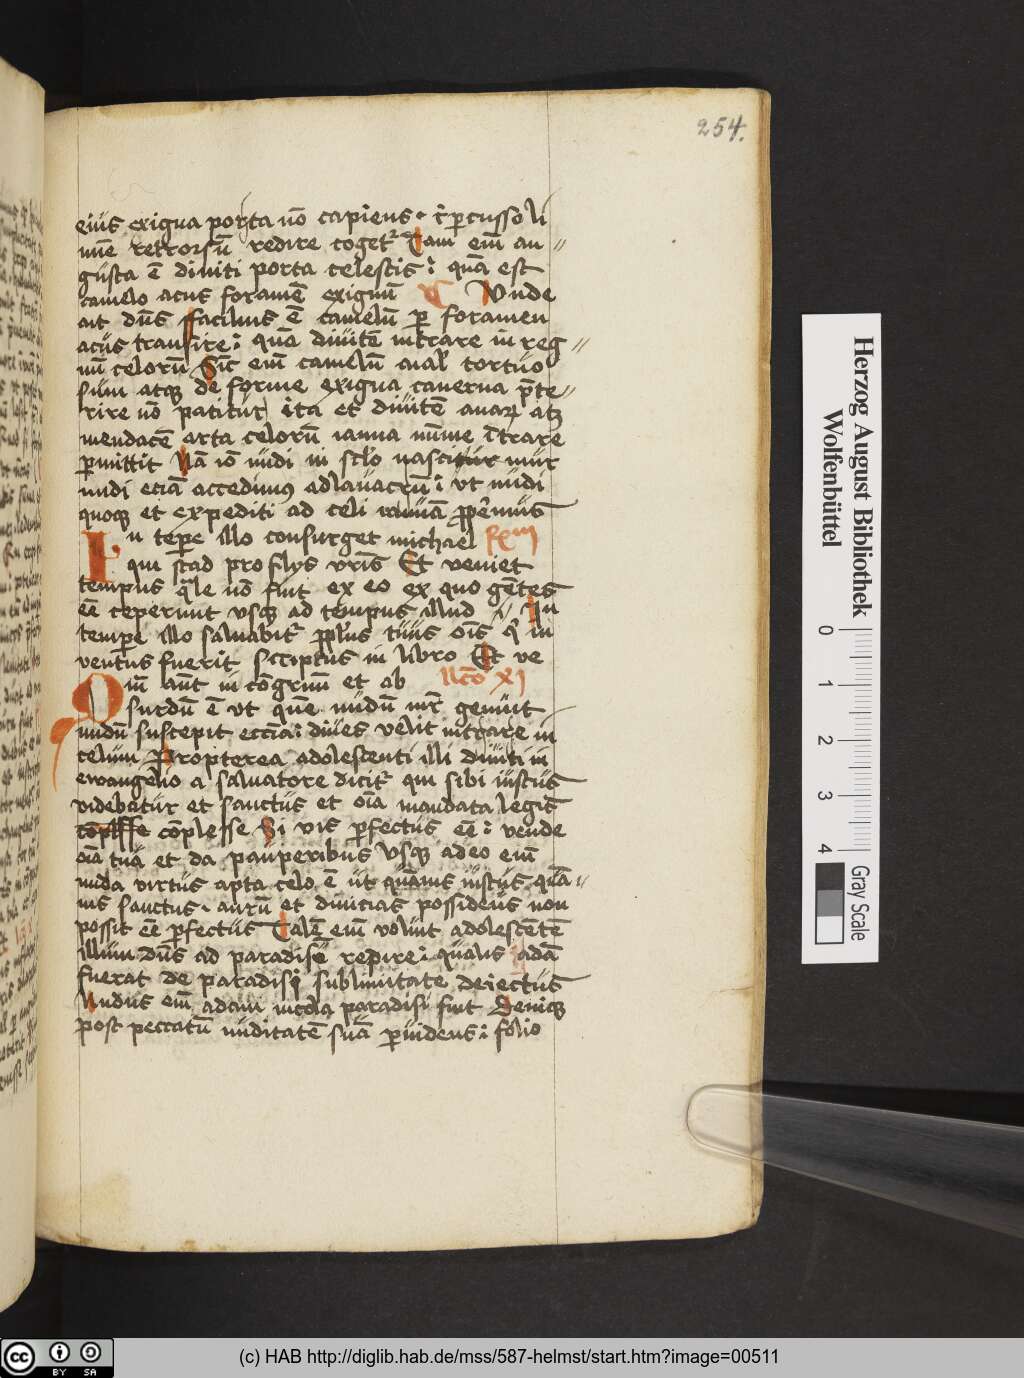 254.
eius exigua porta nō capiens · r̄ percusso li
mīe retrorsū redire coget᷑ Tam eīm an〃
gusta ē diuiti porta celestis : quā est
camelo acus foramē exiguū Unde
ait dn̄s facilius ē camelū per foramen
acus transire : quā diuitē intrare in reg〃
nū celorū Sic eīm camelū aīal tortuo
sum atque de forme exigua cauerna p̄te〃
rire nō patitur ita et diuitē auarū atque
mendacē arta celorū ianua nūme ītrare
permittit Nā iō nudi in sclo nascitur mur
nudi eciā accedimus ad lauacrū : ut nudi
quoque et expediti ad celi ianuā properemus
In tēpe illo consurget michael Rxm
qui stad pro filys vris Et veniet
tempus quale nō fuit ex eo ex quo gētes
eē ceperunt usque ad tempus illud v In
tempe illo saluabit᷑ pplus tuus ōis qui in
ventus fuerit scriptus in libro Et ve
Quā aūt in cōgruū et ab llcō xi
surdū ē ut quē nudū mr̄ genuit
nudū suscepit eccīa : diues velit intrare in
celum Propterea adolescenti illi diuiti in
ewangelio a saluatore dicit᷑ qui sibi iustus
videbatur et sanctus et oīa mandata legis
cōplesse Si vis perfectus eē : vende
oīa tua et da pauperibus Usque adeo eīm
nuda virtus apta celo ē ut quāuis iustus quā〃
uis sanctus · aurū et diuicias possideus non
possit eē perfectus Talē eīm volunt adolescētē
illum dn̄s ad paradisū redire : qualis adā
fuerat de paradisi sublimitate deiectus
Nudus eīm adam incola paradisi fuit Denique
post peccatū nuditatē suā peruidens : folio
Herzog August Bibliothek
Wolfenbüttel
0 1 2 3 4
Gray Scale
cc BY SA
(c) HAB http://diglib.hab.de/mss/587-helmst/start.htm?image=00511